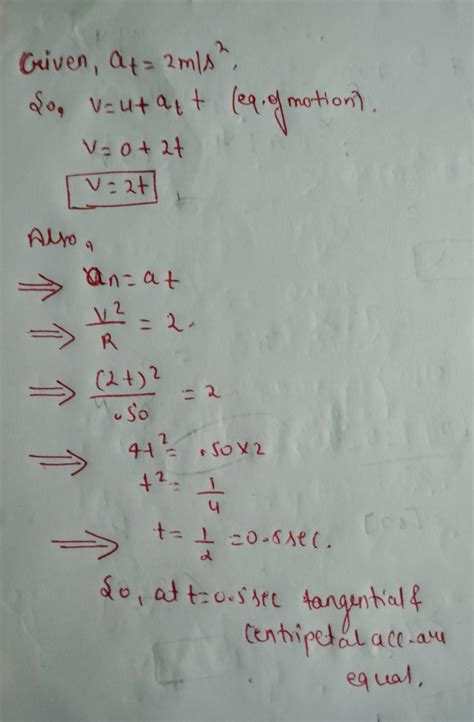 Given, at = 2m/s².
So, v = u + at t (eq. of motion).
v = 0 + 2t
v = 2t
Also,
⇒ an = at
⇒ v²/R = 2.
⇒ (2t)²/.50 = 2
⇒ 4t² = .50 × 2
t² = 1/4
⇒ t = 1/2 = 0.5 sec.
So, at t = 0.5 sec tangential &
centripetal acc. are
equal.